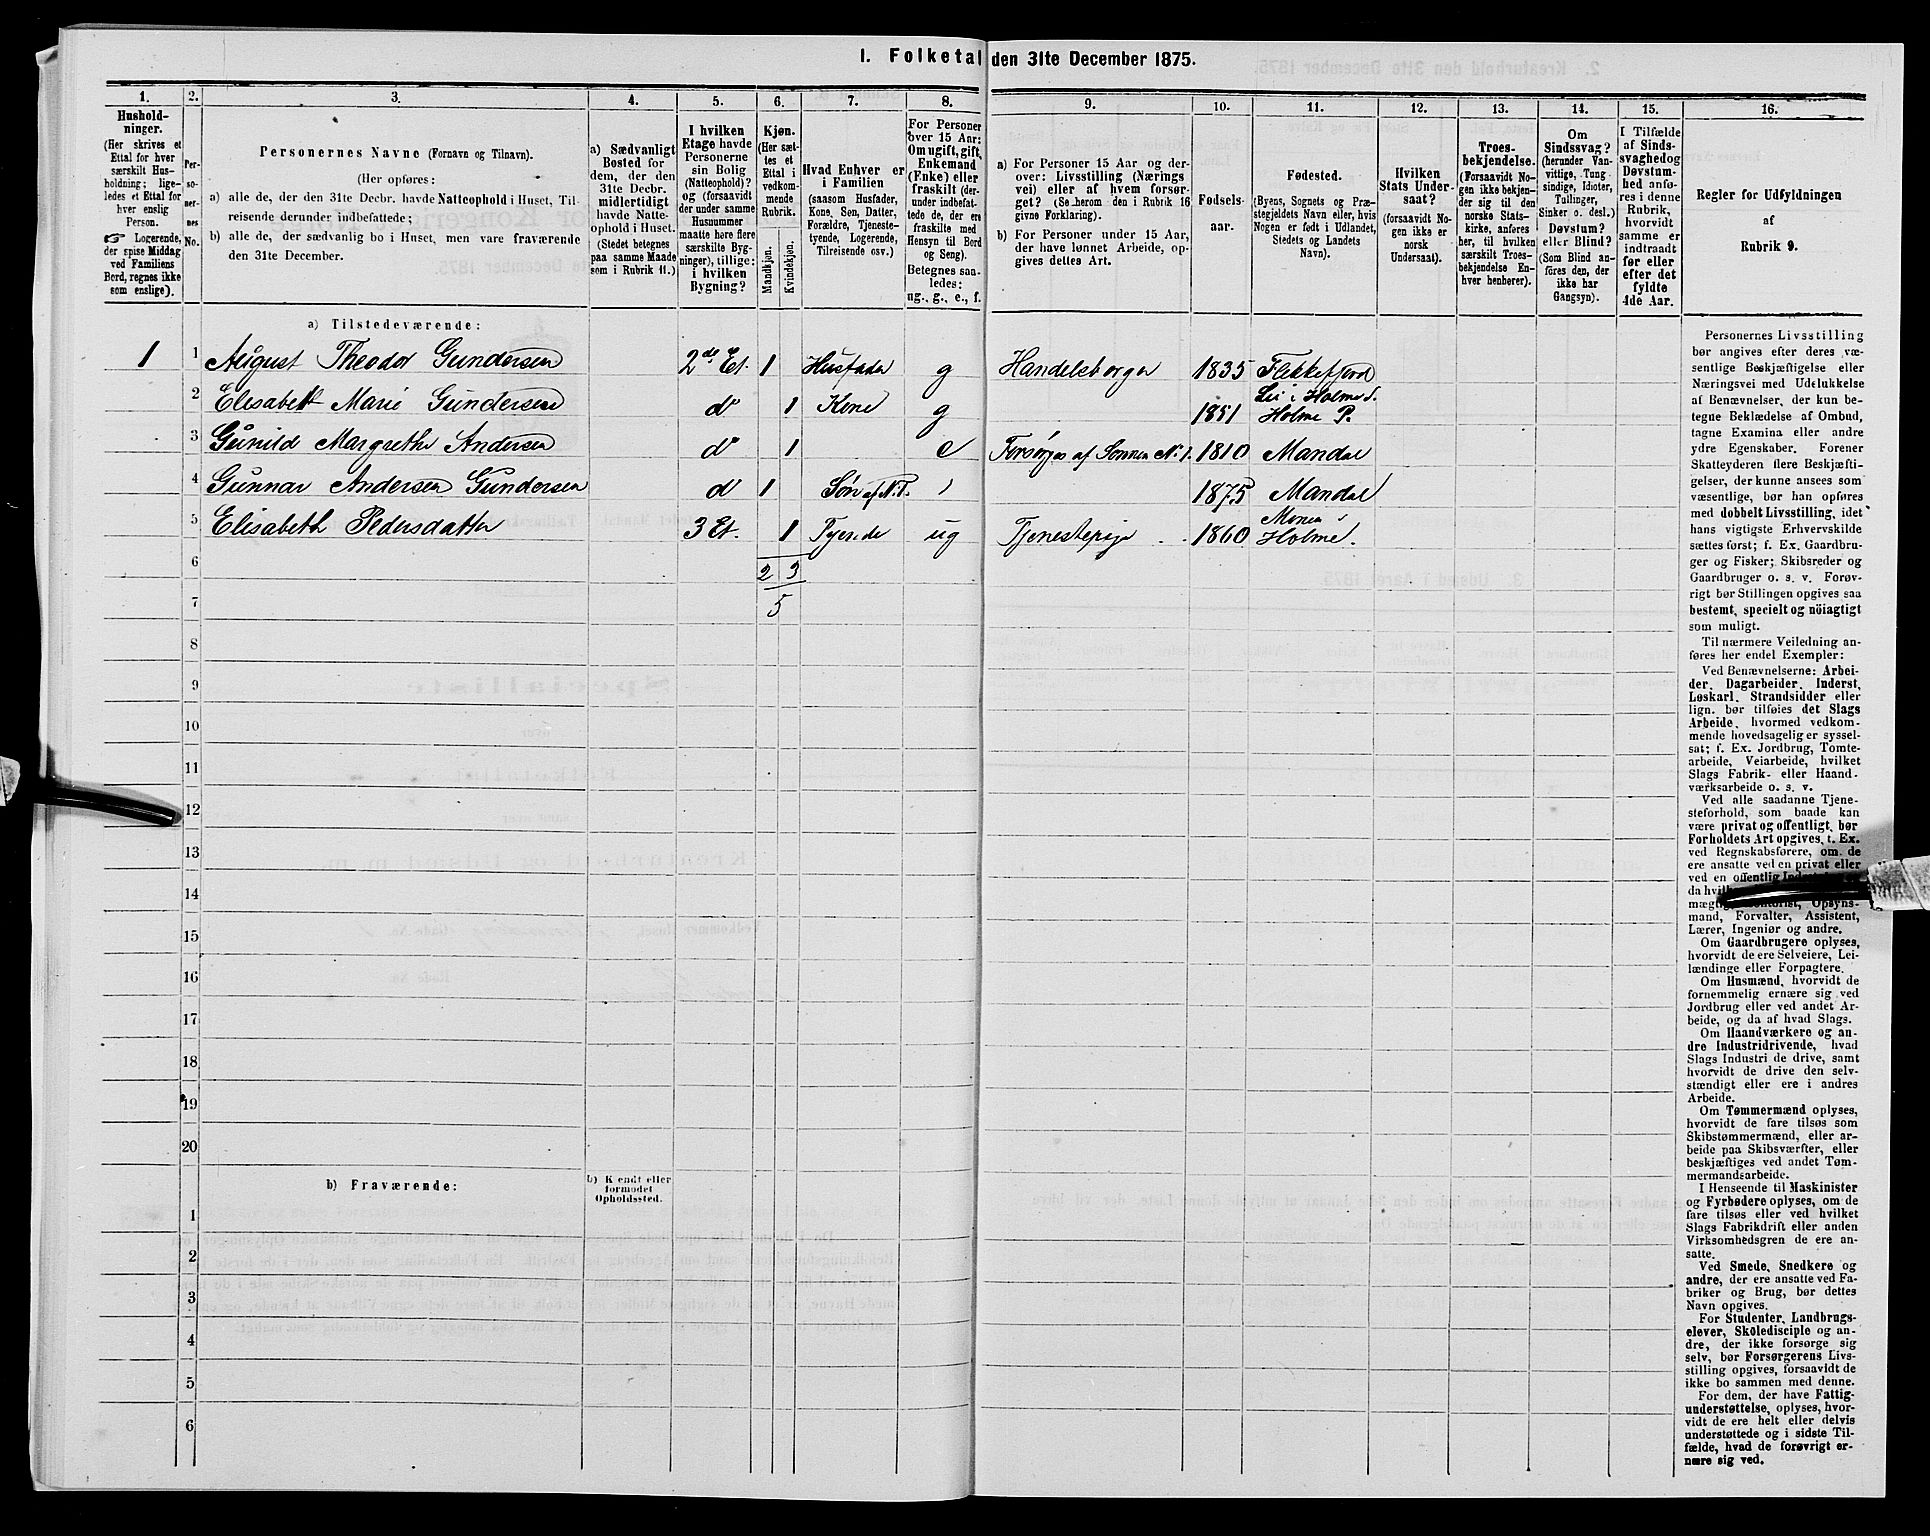 I. Folketal den 31te December 1875.
1. 2. 3. 4. 5. 6. 7. 8. 9. 10. 11. 12. 13. 14. 15. 16.
Hushold-
ninger.
(Her skrives et
Ettal for hver
særskilt Hus-
holdning; lige-
ledes et Ettal for
hver enslig
Person.
☞ Logerende,
der spise Middag
ved Familiens
Bord, regnes ikke
som enslige).
Per-
so-
ner-
nes
No.
Personernes Navne (Fornavn og Tilnavn).
(Her opføres:
a) alle de, der den 31te Decbr. havde Natteophold i Huset, Til-
reisende derunder indbefattede;
b) alle de, der sædvanlig bo i Huset, men vare fraværende
den 31te December.
a) Sædvanligt
Bosted for
dem, der den
31te Decbr.
midlertidigt
havde Natte-
ophold i Huset.
(Stedet betegnes
paa samme Maade
som i Rubrik 11.)
I hvilken
Etage havde
Personerne
sin Bolig
(Natteophold)?
og (forsaavidt
der under samme
Husnummer
maatte høre flere
særskilte Byg-
ninger), tillige:
i hvilken
Bygning?
Kjøn.
(Her sæt-
tes et
Ettal i
vedkom-
mende
Rubrik.
Mandkjøn.
Kvindekjøn.)
Hvad Enhver er
i Familien
(saasom Husfader,
Kone, Søn, Datter,
Forældre, Tjeneste-
tyende, Logerende,
Tilreisende osv.)
For Personer
over 15 Aar:
Om ugift, gift,
Enkemand
(Enke) eller
fraskilt (der-
under indbefat-
tede de, der ere
fraskilte med
Hensyn til Bord
og Seng).
Betegnes saa-
ledes:
ug., g., e., f.
a) For Personer 15 Aar og der-
over: Livsstilling (Nærings
vei) eller af hvem forsør-
get? (Se herom den i Rubrik 16
givne Forklaring).
b) For Personer under 15 Aar,
der have lønnet Arbeide, op-
gives dettes Art.
Fødsels-
aar.
Fødested.
(Byens, Sognets og Præ-
stegjeldets Navn eller, hvis
Nogen er født i Udlandet,
Stedets og Landets
Navn).
Hvilken
Stats Under-
saat?
(forsaavidt No-
gen ikke er
norsk
Undersaat).
Troes-
bekjendelse.
(Forsaavidt No-
gen ikke bekjen-
der sig til den
norske Stats-
kirke, anføres
her, til hvilken
særskilt Troes-
bekjendelse En-
hver henhører).
Om
Sindssvag?
(herunder Van-
vittige, Tung
sindige, Idioter,
Tullinger,
Sinker o. desl.)
Døvstum?
eller Blind?
(Som Blind an-
føres den, der
ikke har
Gangsyn).
I Tilfælde
af Sinds-
svaghed og
Døvstum-
hed anfø-
res i denne
Rubrik,
hvorvidt
samme er
indtraadt
før eller
efter det
fyldte
4de Aar.
Regler for Udfyldningen
af
Rubrik 9.
a) Tilstedeværende:
1 1 August Theodor Gundersen 2de Et. 1 Husfader g Handelsborger 1835 Flekkefjord
2 Elisabeth Marie Gundersen do 1 Kone g 1851 Lei i Holme S. Holme P.
3 Gunild Margrethe Andersen do 1 e Forsørges af Sønnen No 1. 1810 Mandal
4 Gunnar Andersen Gundersen do 1 Søn af N. 1. 1875 Mandal
5 Elisabeth Pedersdatter 3 Et. 1 Tyende ug Tjenestepige 1860 i Holme.
6 2 3
7 5
8
9
10
11
12
13
14
15
16
17
18
19
20
b) Fraværende:
b) Kjendt eller
formodet
Opholdssted.
1
2
3
4
5
6
Personernes Livsstilling
bør angives efter deres væ-
sentlige Beskjæftigelse eller
Næringsvei med Udelukkelse
af Benævnelser, der kun be-
tegne Beklædelse af Ombud,
tagne Examina eller andre
ydre Egenskaber. Forener
Skatteyderen flere Beskjæfti-
gelser, der kunne ansees som
væsentlige, bør han opføres
med dobbelt Livsstilling, idet
hans vigtigste Erhvervskilde
sættes først; f. Ex. Gaardbru-
ger og Fisker; Skibsreder og
Gaardbruger o. s. v. Forøv-
rigt bør Stillingen opgives saa
bestemt, specielt og nöiagtigt
som muligt.
Til nærmere Veiledning an-
føres her endel Exempler:
Ved Benævnelserne: Arbei-
der, Dagarbeider, Inderst,
Løskarl, Strandsidder eller
lign. bør tilføies det Slags
Arbeide, hvormed vedkom-
mende hovedsagelig er syssel-
sat; f. Ex. Jordbrug, Tomte-
arbeide, Veiarbeide, hvilket
Slags Fabrik- eller Haand-
værksarbeide o. s. v.
Ved alle saadanne Tjene-
steforhold, som baade kan
være privat og offentligt, bør
Forholdets Art opgives, t. Ex.
ved Regnskabsførere, om de
ere ansatte ved en privat eller
ved en offentlig
da
mand, Forvalter, Assistent,
Lærer, Ingeniør og andre.
Om Gaardbrugere oplyses,
hvorvidt de ere Selveiere, Lei-
lændinge eller Forpagtere.
Om Husmænd, hvorvidt de
fornemmelig ernære sig ved
Jordbrug eller ved andet Ar-
beide, og da af hvad Slags.
Om Haandværkere og an-
dre Industridrivende, hvad
Slags Industri de drive, samt
hvorvidt de drive den selv-
stændigt eller ere i andres
Arbeide.
Om Tømmermænd oplyses,
hvorvidt de fare tilsøs som
Skibstømmermænd, eller ar-
beide paa Skibsværfter, eller
beskjæftiges ved andet Tøm-
mermandsarbeide.
I Henseende til Maskinister
og Fyrbødere oplyses, om de
fare tilsøs eller ved hvilket
Slags Fabrikdrift eller anden
Virksomhedsgren de ere an-
satte.
Ved Smede, Snedkere og
andre, der ere ansatte ved Fa-
briker og Brug, bør dettes
Navn opgives.
For Studenter, Landbrugs-
elever, Skoledisciple og an-
dre, der ikke forsørge sig
selv, bør Forsørgerens Livs-
stilling opgives, forsaavidt de
ikke bo sammen med denne.
For dem, der have Fattig-
understøttelse, oplyses, hvor-
vidt de ere helt eller delvis
understøttede og i sidste Til-
fælde, hvad de forøvrigt er-
nære sig ved.